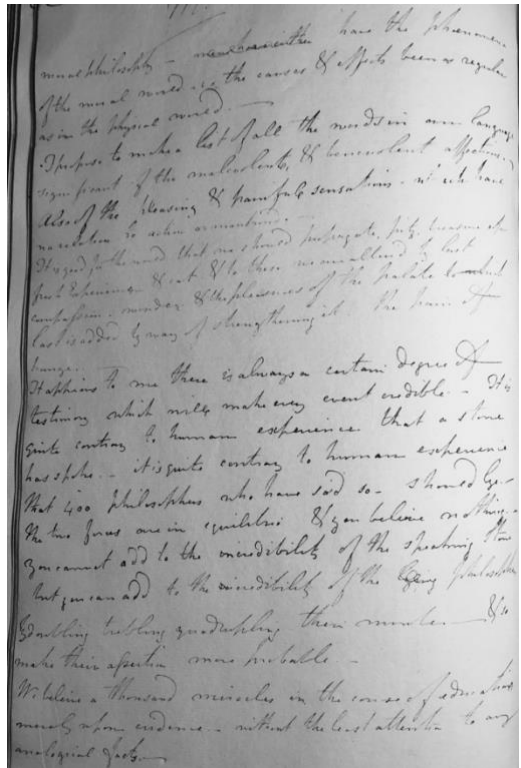 moral philosophy — have the phenomena
of the moral world i.e. the causes & effects been as regular
as in the physical world. —
I propose to make a list of all the words in our language
significant of the malevolent, & benevolent affections,
also of the pleasing & painful sensations — which have
no relation to action or
It is good for the world that we should propagate, pity,
& eat & to these we are allured by lust
compassion. & the pleasures of the palate to which
last is added by way of strengthening it the pain of
hunger.
It appears to me there is always a certain degree of
testimony which will make every event credible. — It is
quite contrary to human experience that a stone
has spoke. — it is quite contrary to human experience
that 400 philosophers who have said so — should lye —
the two forces are in equilibrio & you believe nothing. —
you cannot add to the incredibility of the speaking stone
but you can add to the incredibility of the lying philosophers
by doubling trebling quadrupling their number — & so
make their assertion more probable. —
We believe a thousand miracles in the course of education
merely upon evidence. — without the least attention to any
analogical facts. —